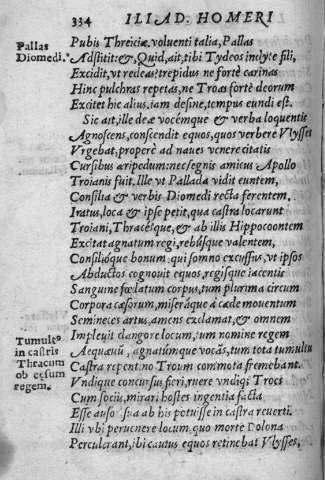 334 ILIAD. HOMERI
Pubis Threiciæ. voluenti talia, Pallas
Pallas Diomedi.
Adstitit: &, Quid, ait, tibi Tydeos inclyte fili,
Excidit, vt redeas? trepidus ne fortè carinas
Hinc pulchras repetas, ne Troas sortè deorum
Excitet hic alius. iam desine, tempus eundi est.
Sic ait, ille deæ vocémque & verba loquentis
Agnoscens, conscendit equos, quos verbere Vlysses
Vrgebat, properè ad naues venere citatis
Cursibus æripedum: nec segnis amicus Apollo
Troianis fuit. Ille vt Pallada vidit euntem,
Consilia & verbis Diomedi recta ferentem,
Iratus, loca & ipse petit, qua castra locarunt
Troiani, Thracésque, & ab illis Hippocoontem
Excitat agnatum regi, rebúsque valentem,
Consilióque bonum. qui somno excussus, vt ipsos
Abductos cognouit equos, regísque iacentis
Sanguine fœdatum corpus, tum plurima circum
Corpora cæsorum, miseráque à cæde mouentum
Semineces artus, amens exclamat, & omnem
Impleuit clangore locum, tum nomine regem
Tumultus in castris Thracum ob cęsum regem.
Aequæuū, agnatúmque vocās, tum tota tumultu
Castra repentino Troum commota fremebant.
Vndique concursus fieri, ruere vndique Troes
Cum sociū, mirari hostes ingentia facta
Esse ab his potuisse in castra reuerti.
Illi vbi peruenere locum, quo morte Dolona
Perculerant, ibi cautus equos retinebat Vlysses,